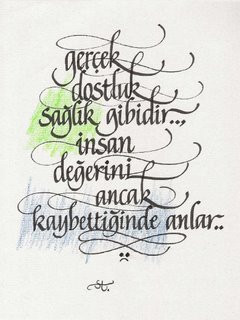 gerçek
dostluk
sağlık gibidir..,
insan
değerini
ancak
kaybettiğinde anlar..